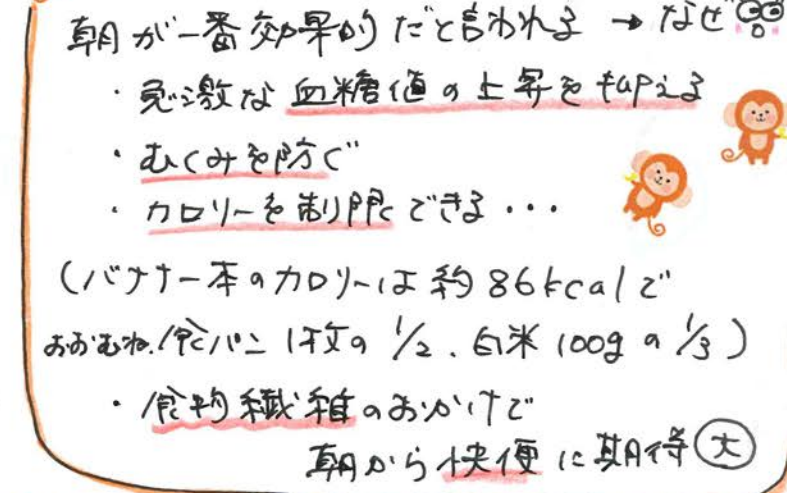 朝が一番効果的だと言われる → なぜ
・急激な血糖値の上昇を抑える
・むくみを防ぐ
・カロリーを制限できる・・・
(バナナ一本のカロリーは約86kcalで
おおむね、食パン1枚の1/2、白米100gの1/3)
・食物繊維のおかげで
朝から快便に期待大